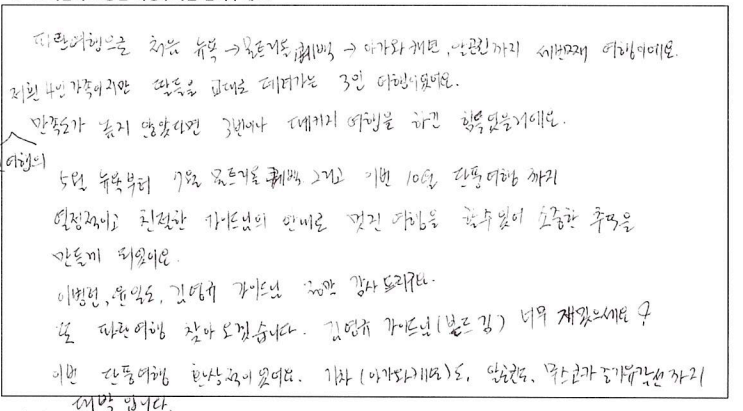 파란여행으로 처음 뉴욕 → 몬트리올, 퀘벡 → 아가와 캐년, 알곤퀸까지 세번째 여행이에요.
저흰 4인 가족이지만 딸들을 교대로 데려가는 3인 여행이었어요.
만족도가 높지 않았다면 3번이나 패키지 여행을 하긴 힘들었을거에요.
여행의
5월 뉴욕부터 7월 몬트리올 퀘벡 그리고 이번 10월 단풍여행 까지
열정적이고 친절한 가이드님의 안내로 멋진 여행을 할수 있어 소중한 추억을
만들게 되었어요.
이병헌, 윤일도, 김영규 가이드님 감사 드리구요.
또 파란여행 찾아 오겠습니다. 김영규 가이드님(빌드 김) 너무 재밌으세요
이번 단풍여행 환상적이었어요. 기차(아가와캐년)도, 알곤퀸도, 무스코카 증기유람선 까지
대박 입니다.